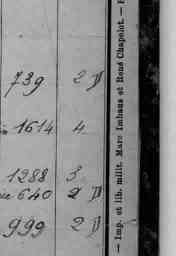 739 2 D
1614 4
1288 3
640 2 D
999 2 D
— Imp. et lib. milit. Marc Imhaus et René Chapelot. —